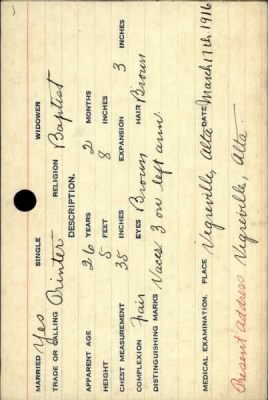 MARRIED Yes SINGLE WIDOWER
TRADE OR CALLING Printer RELIGION Baptist
DESCRIPTION.
APPARENT AGE 26 YEARS 2 MONTHS
HEIGHT 5 FEET 8 INCHES
CHEST MEASUREMENT 35 INCHES EXPANSION 3 INCHES
COMPLEXION Fair EYES Brown HAIR Brown
DISTINGUISHING MARKS Vacc. 3 on left arm.
MEDICAL EXAMINATION. PLACE Vegreville, Alta DATE March 17th 1916
Present address Vegreville, Alta.